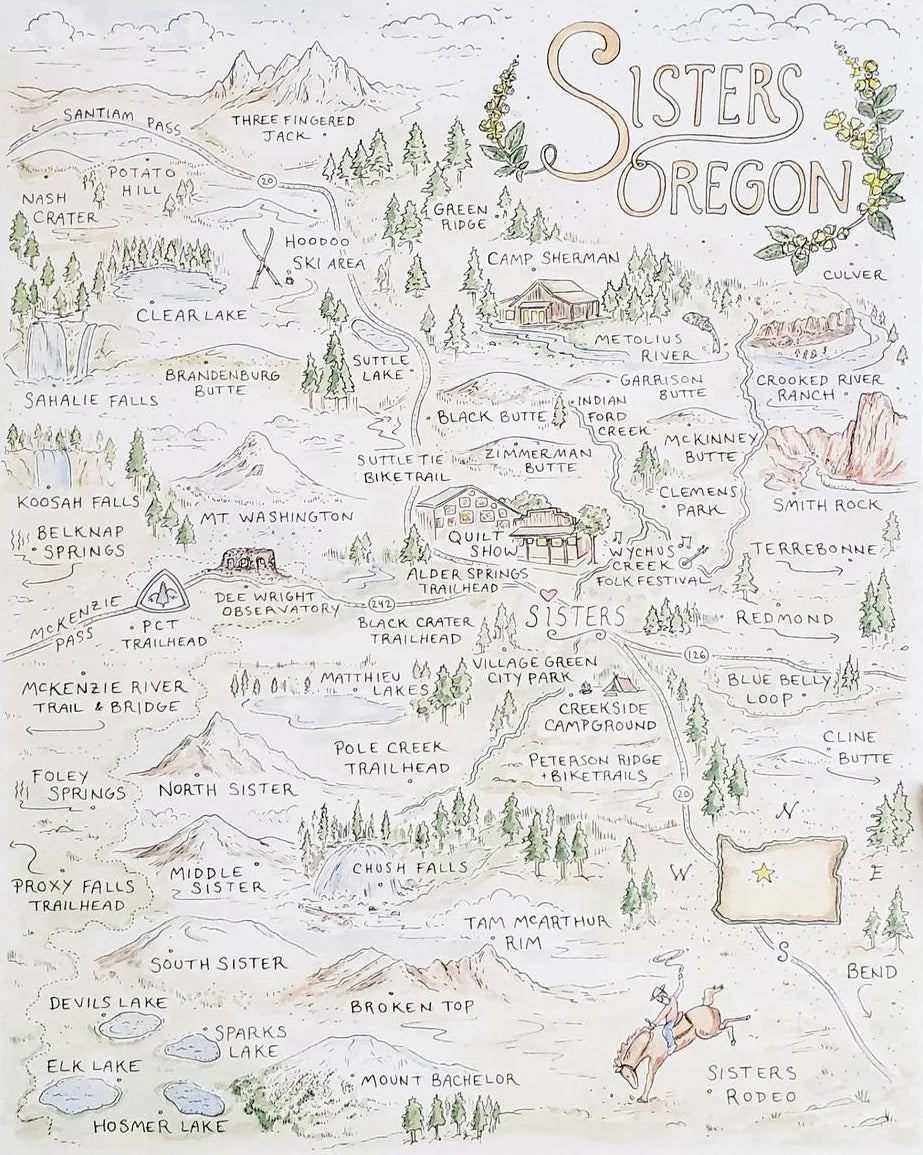 SISTERS
OREGON
SANTIAM PASS
THREE FINGERED
JACK
20
POTATO
HILL
NASH
CRATER
GREEN
RIDGE
HOODOO
SKI AREA
CAMP SHERMAN
CULVER
CLEAR LAKE
METOLIUS
RIVER
SUTTLE
LAKE
BRANDENBURG
BUTTE
SAHALIE FALLS
GARRISON
BUTTE
CROOKED RIVER
RANCH
BLACK BUTTE
INDIAN
FORD
CREEK
MCKINNEY
BUTTE
SUTTLE TIE
BIKETRAIL
ZIMMERMAN
BUTTE
KOOSAH FALLS
MT. WASHINGTON
CLEMENS
PARK
SMITH ROCK
BELKNAP
SPRINGS
QUILT
SHOW
WYCHUS
CREEK
FOLK FESTIVAL
TERREBONNE
ALDER SPRINGS
TRAILHEAD
DEE WRIGHT
OBSERVATORY
242
MCKENZIE
PASS
PCT
TRAILHEAD
BLACK CRATER
TRAILHEAD
SISTERS
REDMOND
126
MCKENZIE RIVER
TRAIL & BRIDGE
MATTHIEU
LAKES
VILLAGE GREEN
CITY PARK
BLUE BELLY
LOOP
CREEKSIDE
CAMPGROUND
POLE CREEK
TRAILHEAD
CLINE
BUTTE
FOLEY
SPRINGS
NORTH SISTER
PETERSON RIDGE
+BIKETRAILS
20
N
W
E
S
PROXY FALLS
TRAILHEAD
MIDDLE
SISTER
CHUSH FALLS
TAM MCARTHUR
RIM
SOUTH SISTER
BEND
DEVILS LAKE
BROKEN TOP
SPARKS
LAKE
ELK LAKE
MOUNT BACHELOR
SISTERS
RODEO
HOSMER LAKE